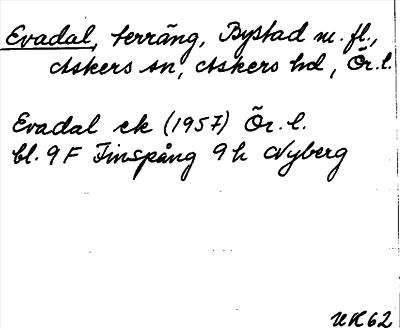 Evadal, terräng, Bystad m. fl.,
Askers sn, Askers hd, Ör. l.
Evadal ek (1957) Ör. l.
bl. 9 F Finspång 9 h Nyberg
UK62